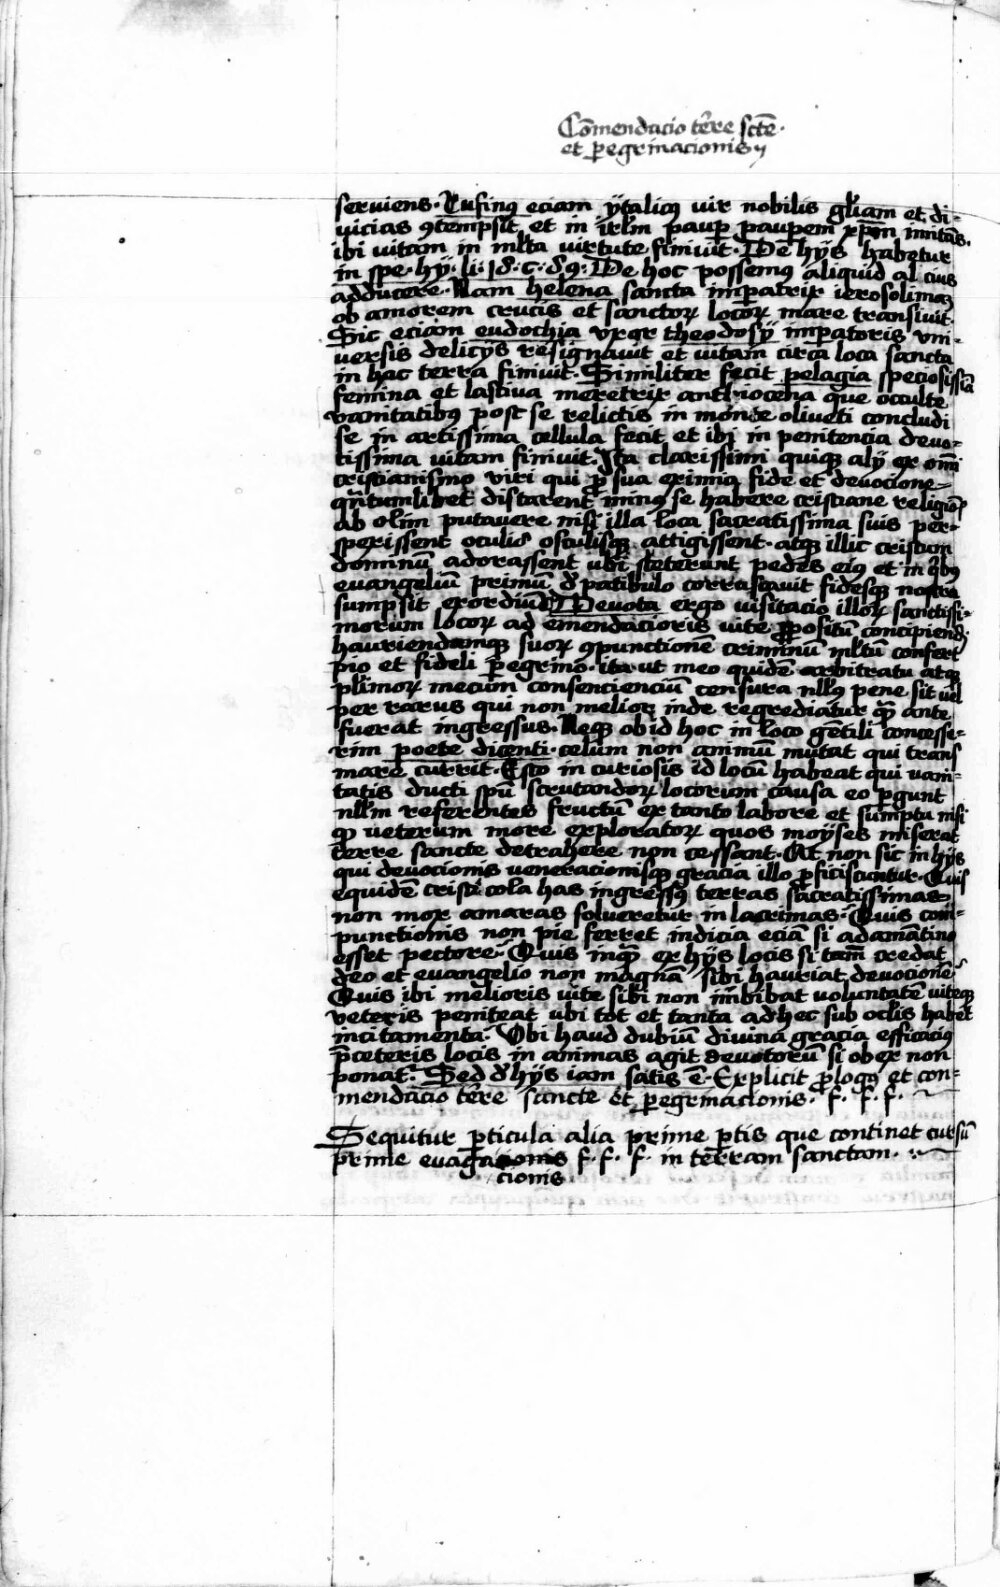 Cōmendacio tr̄re sctē ·
et ꝑegrinacionis ij
serviens · Rufinꝰ eciam ÿtalicꝰ vir nobilis gl̄iam et di-
vicias ꝯtempsit et in irl̄m pauꝑ pauꝑem xp̄m imitās ·
ibi vitam in ml̄ta virtute finivit · De hÿs habetur
in spe · hÿ · li · 18 · c · 89 · De hoc possemꝰ aliquid al cius
adducere · Nam helena sancta imꝑatrix ierosolimaꝫ
ob amorem crucis et sanctoꝝ locoꝝ mare transivit ·
Sic eciam eudochia vxor theodosÿ imꝑatoris vni-
versis delicÿs resignavit et vitam circa loca sancta
in hac terra finivit · Similiter fecit pelagia speciosissīa
femina et lasciva meretrix anthiocena que occulte
vanitatibꝰ post se relictis in monte oliveti concludi
se in artissima cellula fecit et ibi in penitencia devo-
tissima vitam finivit · Ita clarissimi quiqꝫ alÿ ex om̄i
cristianismo viri qui ꝓ sua eximia fide et devocione-
qn̄tumlibet distarent minꝰ se habere cristiane religiōis
ab olim putavere nisi illa loca sacratissima suis per-
spexissent oculis osculisqꝫ attigissent · atqꝫ illic cristum
dominū adorassent vbi steterunt pedes eiꝰ et in qͥbꝰ
evangeliū primū d̄ patibulo corruscavit fidesqꝫ nostra
sumpsit exordiū Devota ergo visitacio illoꝝ sanctissi-
morum locoꝝ ad emendacioris vite ꝓpositū concipiendū
hauriendamqꝫ suoꝝ ꝯpunctionē criminū ml̄tū confert
pio et fideli ꝑegrino · ita ut meo quidē arbitratu atqꝫ
pl̄imoꝝ mecum consencienciū censura nll̄ꝰ pene sit vel
per rarus qui non melior inde regrediatur qͣ̄ ante
fuerat ingressus · Neqꝫ ob id hoc in loco gētili concesse-
rim poete dicenti · celum non animū mutat qui trans
mare currit · Esto in curiosis id locū habeat qui vani-
tatis ducti spū scrutandoꝝ locorum causa eo ꝑgunt
nll̄m referentes fructū ex tanto labore et sumptu nisi
qͩ veterum more exploratoꝝ quos moÿses miserat
terre sancte detrahere non cessant · At non sic in hÿs
qui devocionis veneracionisqꝫ gracia illo ꝓficiscuntur · Quis
equidē cristicola has ingressꝰ terras sacratissimas
non mox amaras solveretur in lacrimas · Quis com-
punctionis non pie ferret indicia eciā si adamātino
esset pectore · Quis inqͣ̄ ex hÿs locis si tam̄ credat
deo et evangelio non magnā sibi hauriat devocionē
Quis ibi melioris vite sibi non imbibat voluntatē viteqꝫ
veteris peniteat vbi tot et tanta adhec sub ocl̄is habet
incitamenta · Vbi haud dubiū divina gracia efficacius
p̄ceteris locis in animas agit devotorū si obex non
ponat · Sed d̄ hÿs iam satis ē · Explicit ꝓlogꝰ et con-
mendacio tr̄re sancte et ꝑegrinacionis · f · f · f ·
Sequitur ꝑticula alia prime ꝑtis que continet cursū
prime evaga f · f · f · in terram sanctam ·
cionis